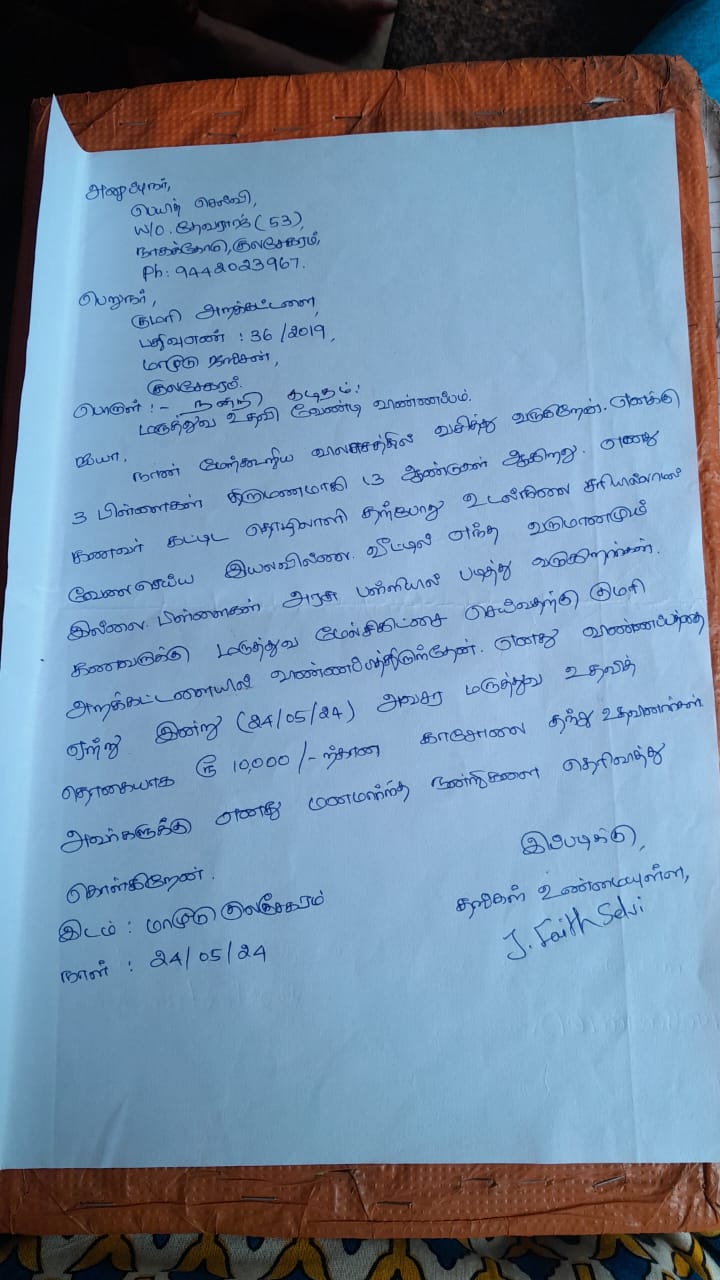 அனுப்புநர்,
பெயித் செல்வி,
W/O. தேவராஜ் (53),
நாகக்கோடு, குலசேகரம்,
Ph: 9442023967.
பெறுநர்,
குமரி அறக்கட்டளை,
பதிவுஎண் : 36/2019,
மாமூடு ஜங்சன்,
குலசேகரம்.
பொருள் :- நன்றி கடிதம்!
மருத்துவ உதவி வேண்டி வாண்ணப்பம்.
ஐயா,
நான் மேற்கூறிய வாலசத்தில் வசித்து வருகிறேன். எனக்கு
3 பிள்ளைகள் திருமணமாகி 13 ஆண்டுகள் ஆகிறது. எனது
கணவர் கட்டிட தொழிலாளி தற்போது உடல்நிலை சரியில்லாமல்
வேலைசெய்ய இயலவில்லை. வீட்டில் எந்த வருமானமும்
இல்லை. பிள்ளைகள் அரசு பள்ளியில் படித்து வருகிறார்கள்.
கணவருக்கு மருத்துவ மேல்சிகிட்சை செய்வதற்கு குமரி
அறக்கட்டளையில் வாண்ணப்பித்திருந்தேன். எனது வாண்ணப்பத்தை
ஏற்று இன்று (24/05/24) அவசர மருத்துவ உதவித்
தொகையாக ரூ 10,000/-ற்கான காசோலை தந்து உதவினார்கள்.
அவர்களுக்கு எனது மனமார்ந்த நன்றிகளை தெரிவித்து
கொள்கிறேன்.
இப்படிக்கு,
இடம் : மாமூடு குலசேகரம்
தங்கள் உண்மையுள்ள,
நாள் : 24/05/24
J. Faith Selvi